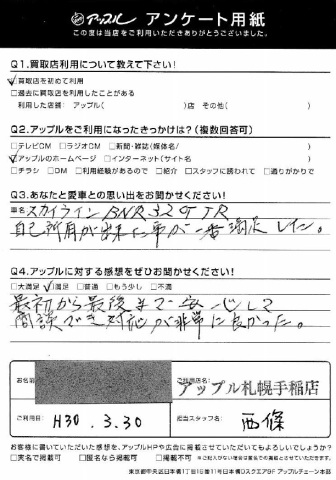 アップル アンケート用紙
この度は当店をご利用いただきありがとうございました。
Q1.買取店利用について教えて下さい!
☑買取店を初めて利用
□過去に買取店を利用したことがある
利用した店舗: アップル( )店 その他( )
Q2.アップルをご利用になったきっかけは?(複数回答可)
□テレビCM □ラジオCM □新聞・雑誌(媒体名/ )
☑アップルのホームページ □インターネット(サイト名 )
□チラシ □DM □利用経験があるので □紹介 □スタッフに誘われて □通りがかりで
Q3.あなたと愛車との思い出をお聞かせください!
車名 スカイラインBNR32 GTR
自己所有が出来た事が一番満足した。
Q4.アップルに対する感想をぜひお聞かせください!
□大満足 ☑満足 □普通 □もう少し □不満
最初から最後まで安心して
商談でき対応が非常に良かった。
お名前
ご利用店名 アップル札幌手稲店
ご利用日 H30.3.30
担当スタッフ名 西條
お客様に書いていただいた感想を、アップルHPや広告に掲載させていただいてもよろしいでしょうか?
□実名で掲載可 □匿名なら掲載可 □掲載不可
東京都中央区日本橋1丁目16番11号日本橋Dスクエア9F アップルチェーン本部